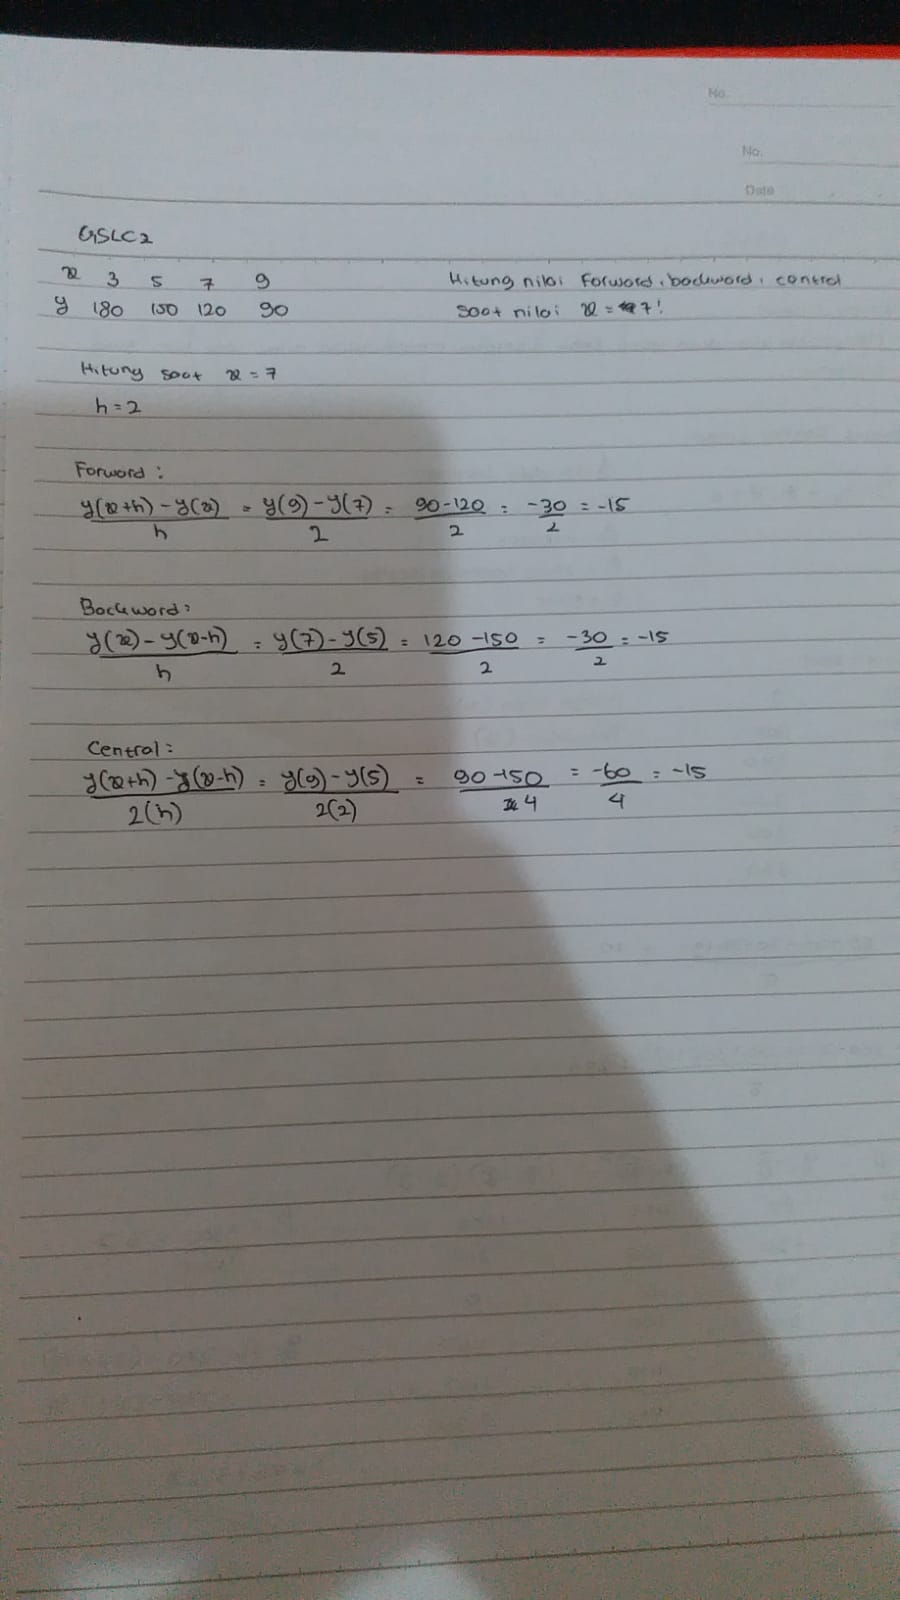 No.
No.
Date
GSLC2
x 3 5 7 9
y 180 150 120 90
Hitung nilai Forward, backward, central
saat nilai x = 7!
Hitung saat x = 7
h = 2
Forward :
y(x+h) - y(x) / h = y(9) - y(7) / 2 = 90-120 / 2 = -30 / 2 = -15
Backword :
y(x) - y(x-h) / h = y(7) - y(5) / 2 = 120 - 150 / 2 = -30 / 2 = -15
Central :
y(x+h) - y(x-h) / 2(h) = y(9) - y(5) / 2(2) = 90 - 150 / 4 = -60 / 4 = -15